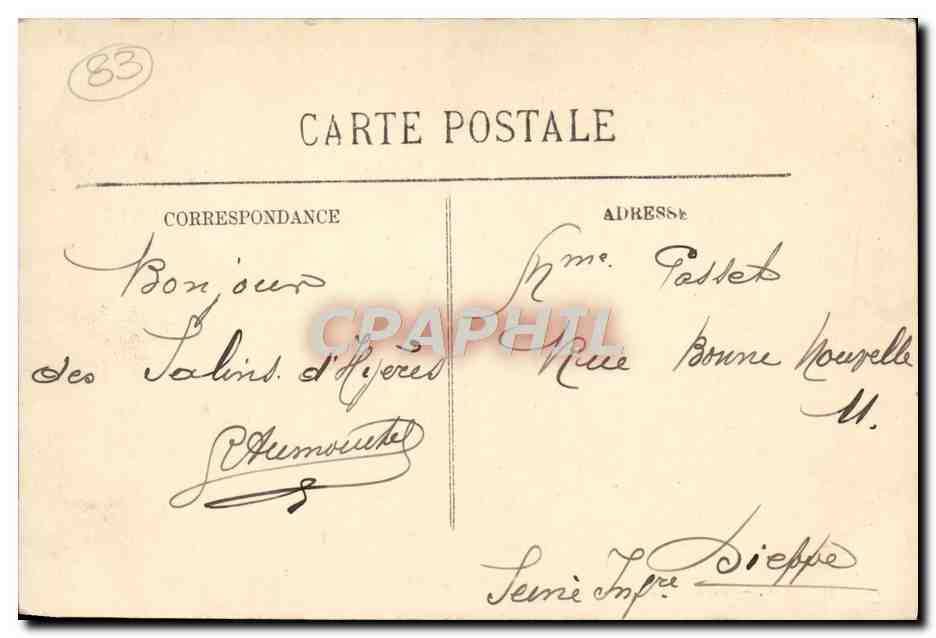 83
CARTE POSTALE
CORRESPONDANCE
Bonjour
des Salins d'Hyères
ADRESSE
Mme. Passet
Rue Bonne Nouvelle
11.
Dieppe
Seine Infre
CPAPHIL